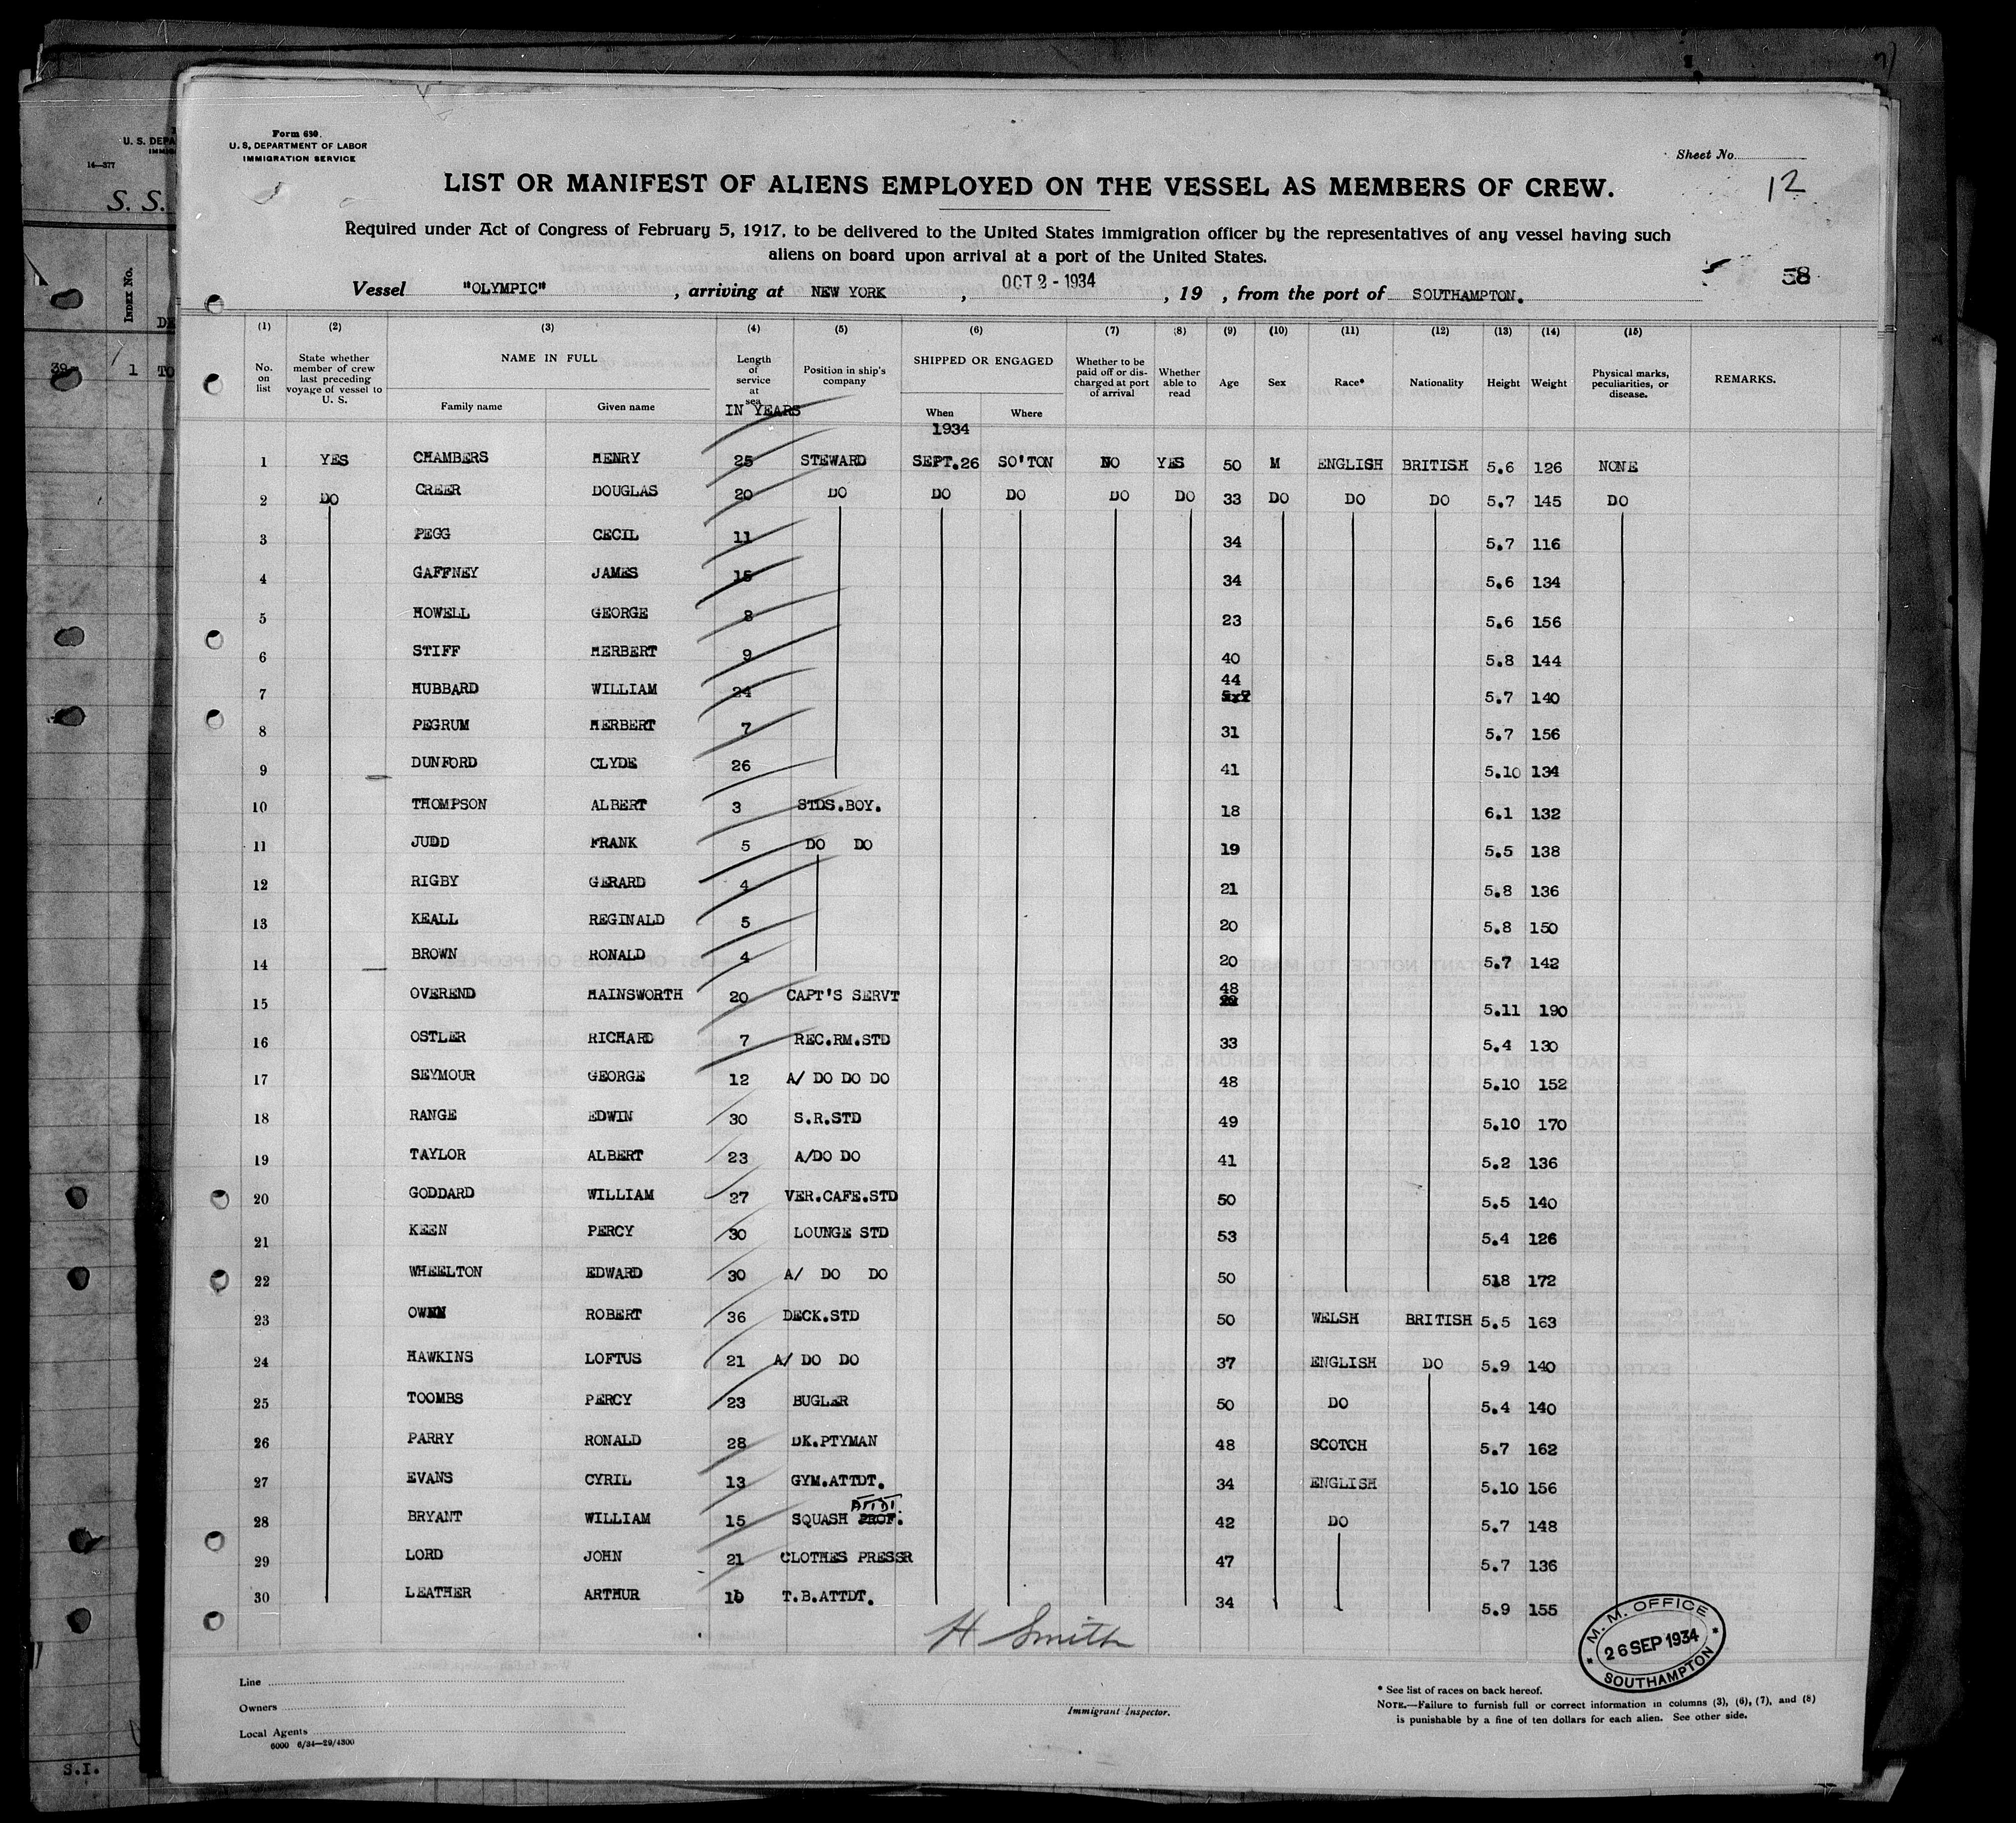 Form 630.
U. S. DEPARTMENT OF LABOR
IMMIGRATION SERVICE
U. S. DEPA
14—377
S. S.
Sheet No.
12
LIST OR MANIFEST OF ALIENS EMPLOYED ON THE VESSEL AS MEMBERS OF CREW.
Required under Act of Congress of February 5, 1917, to be delivered to the United States immigration officer by the representatives of any vessel having such
aliens on board upon arrival at a port of the United States.
58
Vessel "OLYMPIC" , arriving at NEW YORK , OCT 2 - 1934 , 19 , from the port of SOUTHAMPTON.
(1) (2) (3) (4) (5) (6) (7) (8) (9) (10) (11) (12) (13) (14) (15)
No. on list State whether member of crew last preceding voyage of vessel to U. S. NAME IN FULL Length of service at sea Position in ship's company SHIPPED OR ENGAGED Whether to be paid off or discharged at port of arrival Whether able to read Age Sex Race* Nationality Height Weight Physical marks, peculiarities, or disease. REMARKS.
Family name Given name IN YEARS When Where
1934
1 YES CHAMBERS HENRY 25 STEWARD SEPT.26 SO'TON NO YES 50 M ENGLISH BRITISH 5.6 126 NONE
2 DO CREER DOUGLAS 20 DO DO DO DO DO 33 DO DO DO 5.7 145 DO
3 PEGG CECIL 11 34 5.7 116
4 GAFFNEY JAMES 15 34 5.6 134
5 HOWELL GEORGE 8 23 5.6 156
6 STIFF HERBERT 9 40 5.8 144
7 HUBBARD WILLIAM 24 44 5.7 140
8 PEGRUM HERBERT 7 31 5.7 156
9 DUNFORD CLYDE 26 41 5.10 134
10 THOMPSON ALBERT 3 STDS.BOY. 18 6.1 132
11 JUDD FRANK 5 DO DO 19 5.5 138
12 RIGBY GERARD 4 21 5.8 136
13 KEALL REGINALD 5 20 5.8 150
14 BROWN RONALD 4 20 5.7 142
15 OVEREND HAINSWORTH 20 CAPT'S SERVT 48 5.11 190
16 OSTLER RICHARD 7 REC.RM.STD 33 5.4 130
17 SEYMOUR GEORGE 12 A/ DO DO DO 48 5.10 152
18 RANGE EDWIN 30 S.R.STD 49 5.10 170
19 TAYLOR ALBERT 23 A/DO DO 41 5.2 136
20 GODDARD WILLIAM 27 VER.CAFE.STD 50 5.5 140
21 KEEN PERCY 30 LOUNGE STD 53 5.4 126
22 WHEELTON EDWARD 30 A/ DO DO 50 518 172
23 OWEN ROBERT 36 DECK.STD 50 WELSH BRITISH 5.5 163
24 HAWKINS LOFTUS 21 A/ DO DO 37 ENGLISH DO 5.9 140
25 TOOMBS PERCY 23 BUGLER 50 DO 5.4 140
26 PARRY RONALD 28 DK.PTYMAN 48 SCOTCH 5.7 162
27 EVANS CYRIL 13 GYM.ATTDT. 34 ENGLISH 5.10 156
28 BRYANT WILLIAM 15 SQUASH PROF. ATTDT 42 DO 5.7 148
29 LORD JOHN 21 CLOTHES PRESSR 47 5.7 136
30 LEATHER ARTHUR 10 T.B.ATTDT. 34 5.9 155
H Smith
M. M. OFFICE
26 SEP 1934
SOUTHAMPTON
Line
Owners
Local Agents
6000 6/34—29/4300
Immigrant Inspector.
* See list of races on back hereof.
NOTE.—Failure to furnish full or correct information in columns (3), (6), (7), and (8)
is punishable by a fine of ten dollars for each alien. See other side.
Index No.
39
1 TO
S.I.